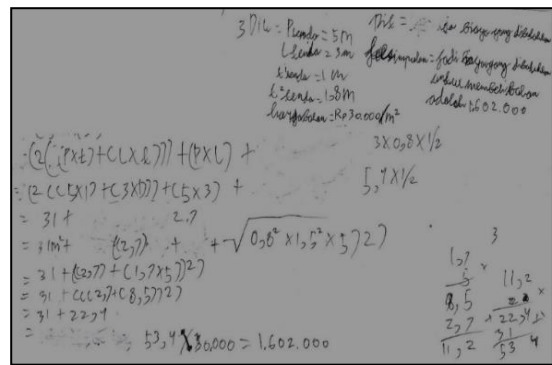 3 Dik = Ptenda = 5m
l tenda = 3m
t tenda = 1 m
t² tenda = 1,8m
harga bahan = Rp 30.000/m²
Dit = biaya yang dibutuhkan
kesimpulan = Jadi biaya yang dibutuhkan
untuk membeli bahan
adalah 1.602.000
3x0,8x1/2
5,4x1/2
(2((PXt)+(LXt)))+(PXL)+
=(2((5X1)+(3X1)))+(5X3)+
= 31 + 2.7
= 31m²+ ((2,7) + + √0,8² x1,5² x5)2)
= 31+((2,7)+(1,7x5))2)
= 31+(((2,7)+(8,5))2)
= 31+22,4
= 53,4 X 30.000 = 1.602.000
3
1,7
5 x
8,5
2,7 +
11,2
11,2
2 x
22,4
31
53 4